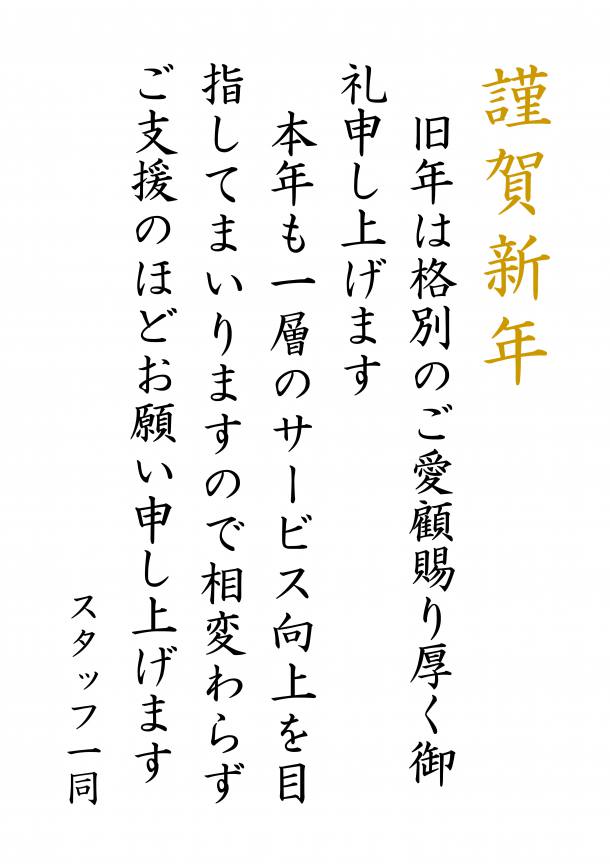 謹賀新年
旧年は格別のご愛顧賜り厚く御
礼申し上げます
本年も一層のサービス向上を目
指してまいりますので相変わらず
ご支援のほどお願い申し上げます
スタッフ一同